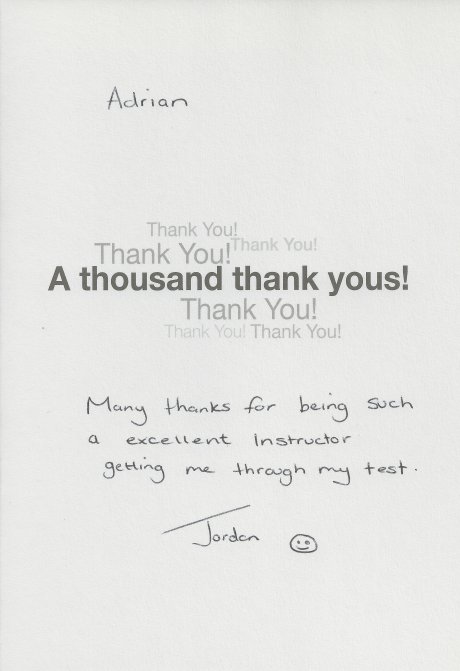 Adrian
Thank You!
Thank You! Thank You!
A thousand thank yous!
Thank You!
Thank You! Thank You!
Many thanks for being such
a excellent instructor
getting me through my test.
Jordan